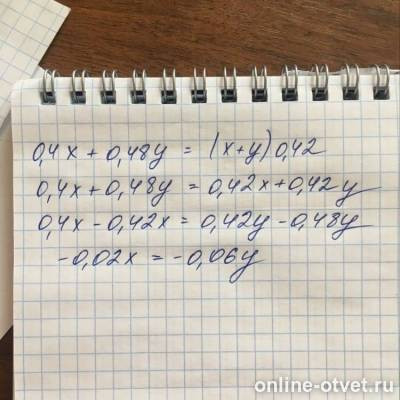 0,4x + 0,48y = (x+y)0,42
0,4x + 0,48y = 0,42x + 0,42y
0,4x - 0,42x = 0,42y - 0,48y
-0,02x = -0,06y
online-otvet.ru